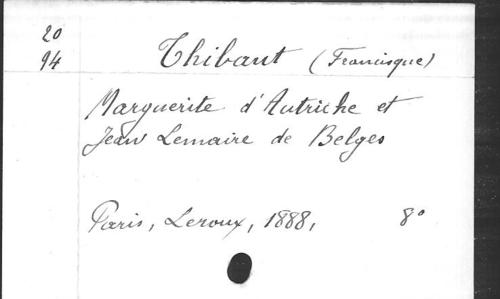 20
94
Thibaut (Francisque)
Marguerite d'Autriche et
Jean Lemaire de Belges
Paris, Leroux, 1888, 8°